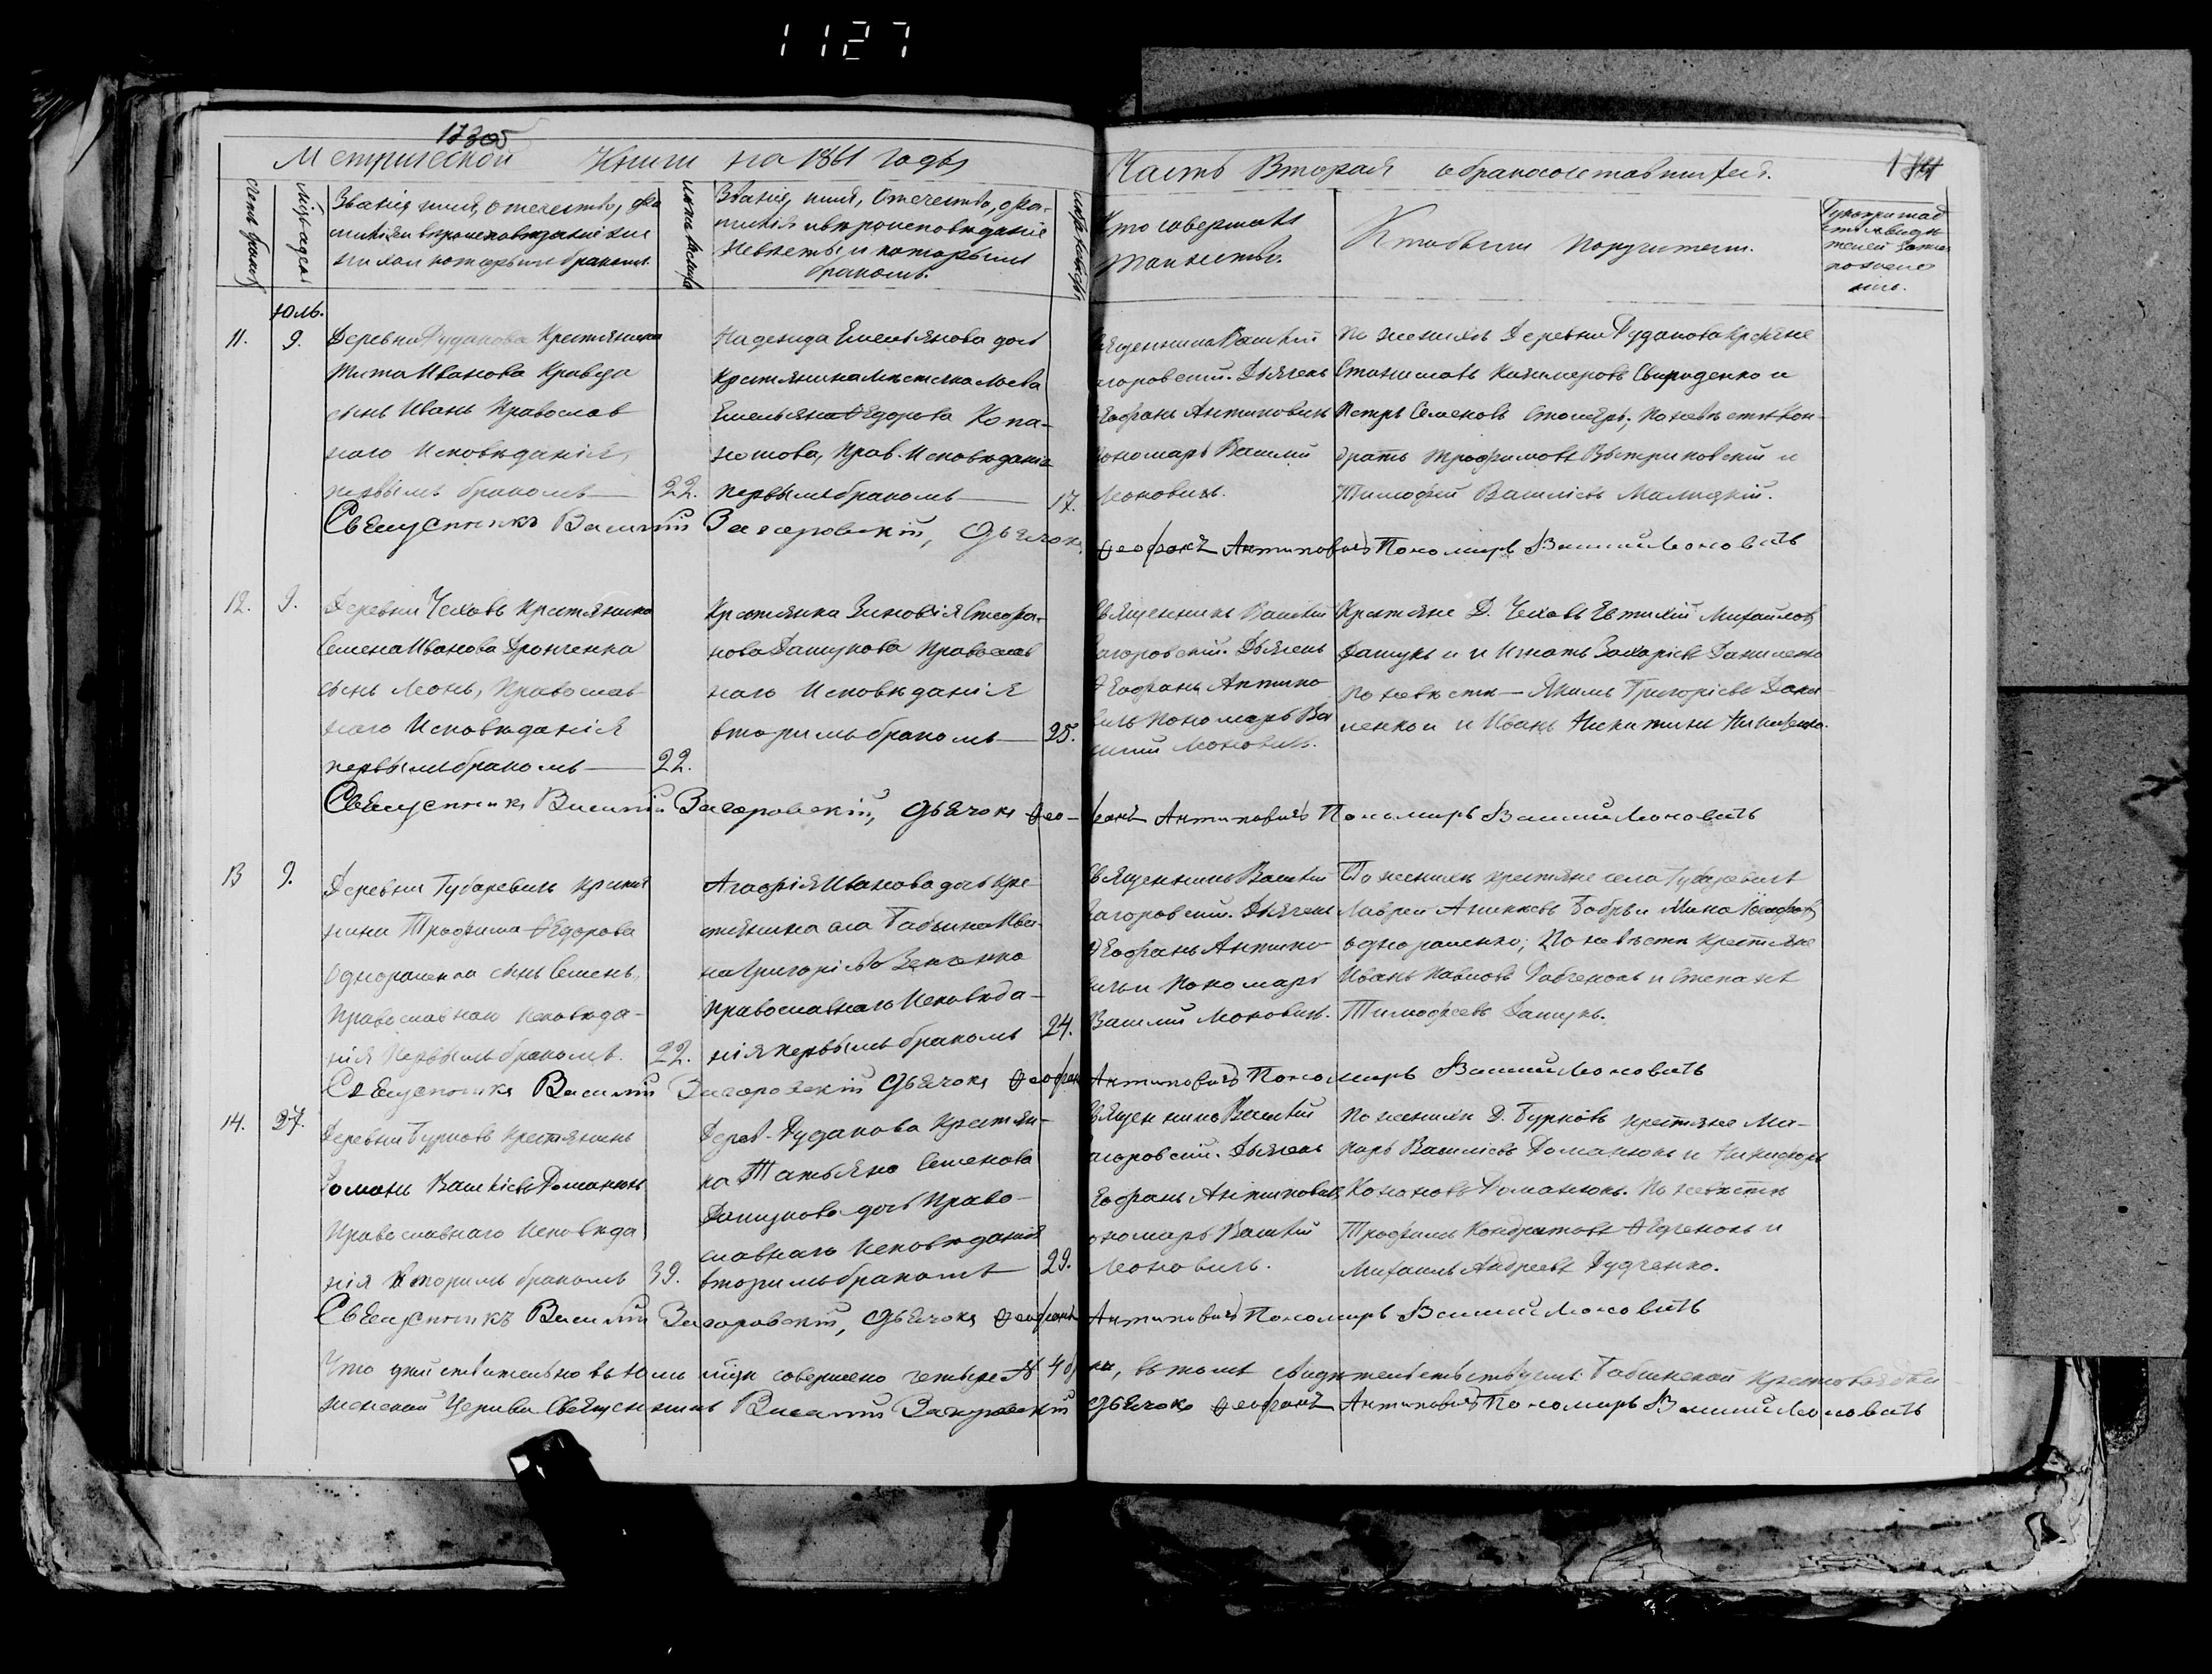 1127
Метрической Книги на 1861 годъ
Часть Вторая о бракосочетавшихся.
174
Званіе, имя, отечество, фа
миліи и вѣроисповѣданіе же
ниха и которымъ бракомъ.
Званіе, имя, Отечество, фа-
милія и вѣроисповѣданіе
Невѣсты и которымъ
бракомъ.
Кто совершалъ
таинство.
Кто были поручители.
Юль.
11. 9.
Деревни Рудакова Крестьянина
Тита Иванова Кравца
сынъ Иванъ Православ
наго Исповѣданія,
первымъ бракомъ — 22.
Надежда Емельянова дочь
Крестьянина
Емельяна Ѳедорова
Прав. Исповѣданія
первымъ бракомъ — 17.
Священникъ Василій
Загоровскій. Дьячекъ
Ѳеофанъ Антиповичъ
Пономарь Василій
Моновичъ.
По женихѣ Деревни Рудакова Крестьяне
Станиславъ Казимеровъ Свириденко и
Петръ Семеновъ Столяръ; По невѣстѣ Кон-
дратъ Трофимовъ и
Тимофей Василіевъ Малицкій.
Священникъ Василій Загоровскій, Дьячокъ
Ѳеофанъ Антиповичъ Пономарь Василій Моновичъ
12. 9.
Деревни Чеховъ Крестьянина
Семена Иванова Дронченка
сынъ Леонъ, Православ
наго Исповѣданія
первымъ бракомъ — 22.
Крестьянка Зиновія Стефа-
нова Дашукова Православ
наго Исповѣданія
вторимъ бракомъ — 25.
Священникъ Василій
Загоровскій. Дьячекъ
Ѳеофанъ Антипо
вичъ Пономарь Ва
силій Моновичъ.
Крестьяне Д. Чеховъ Евтихій Михайловъ
Дашукъ и Игнатъ Захаріевъ Даниленко
По невѣстѣ — Якимъ Григоріевъ Дани
ленко и Иванъ Никитинъ
Священникъ Василій Загоровскій, Дьячокъ Ѳео-
фанъ Антиповичъ Пономарь Василій Моновичъ
13 9.
Деревни Губаревичъ Крестья
нина Трофима Ѳедорова
Одnораменка сынъ Семенъ,
Православнаго Исповѣда-
нія Первымъ бракомъ. 22.
Агафія Иванова дочь Кре
стьянина села Бабчина Ива-
на Григоріева
Православнаго Исповѣда-
нія первымъ бракомъ 24.
Священникъ Василій
Загоровскій. Дьячекъ
Ѳеофанъ Антипо-
вичъ и Пономарь
Василій Моновичъ.
По женихѣ крестьяне села Губаревичъ
Лаврен Бобръ и Мина
однораменко; По невѣстѣ Крестьяне
Иванъ Павловъ и Степанъ
Тимофеевъ Дашукъ.
Священникъ Василій Загоровскій Дьячокъ Ѳеофанъ
Антиповичъ Пономарь Василій Моновичъ
14. 27.
Деревни Бурковъ Крестьянинъ
Романъ Василіевъ Романюкъ
Православнаго Исповѣда
нія Вторимъ бракомъ 39.
Дерев. Рудакова Крестьян-
ка Татьяна Семенова
Дашукова дочь Право-
славнаго Исповѣданія
вторимъ бракомъ 29.
Священникъ Василій
Загоровскій. Дьячекъ
Ѳеофанъ Антиповичъ
Пономарь Василій
Моновичъ.
По женихѣ Д. Бурковъ крестьяне Ма-
каръ Василіевъ Романюкъ и Никифоръ
Кононовъ Романюкъ. По невѣстѣ
Трофимъ Кондратовъ Ѳедченокъ и
Михаилъ Андреевъ Рудченко.
Священникъ Василій Загоровскій, Дьячокъ Ѳеофанъ
Антиповичъ Пономарь Василій Моновичъ
Что дѣйствительно въ Юль мѣсяцѣ совершено четыре № 4 бра
ка, въ томъ свидѣтельствуемъ: Бабчинской Крестовоздви
женской Церкви Священникъ Василій Загоровскій
Дьячокъ Ѳеофанъ Антиповичъ Пономарь Василій Моновичъ